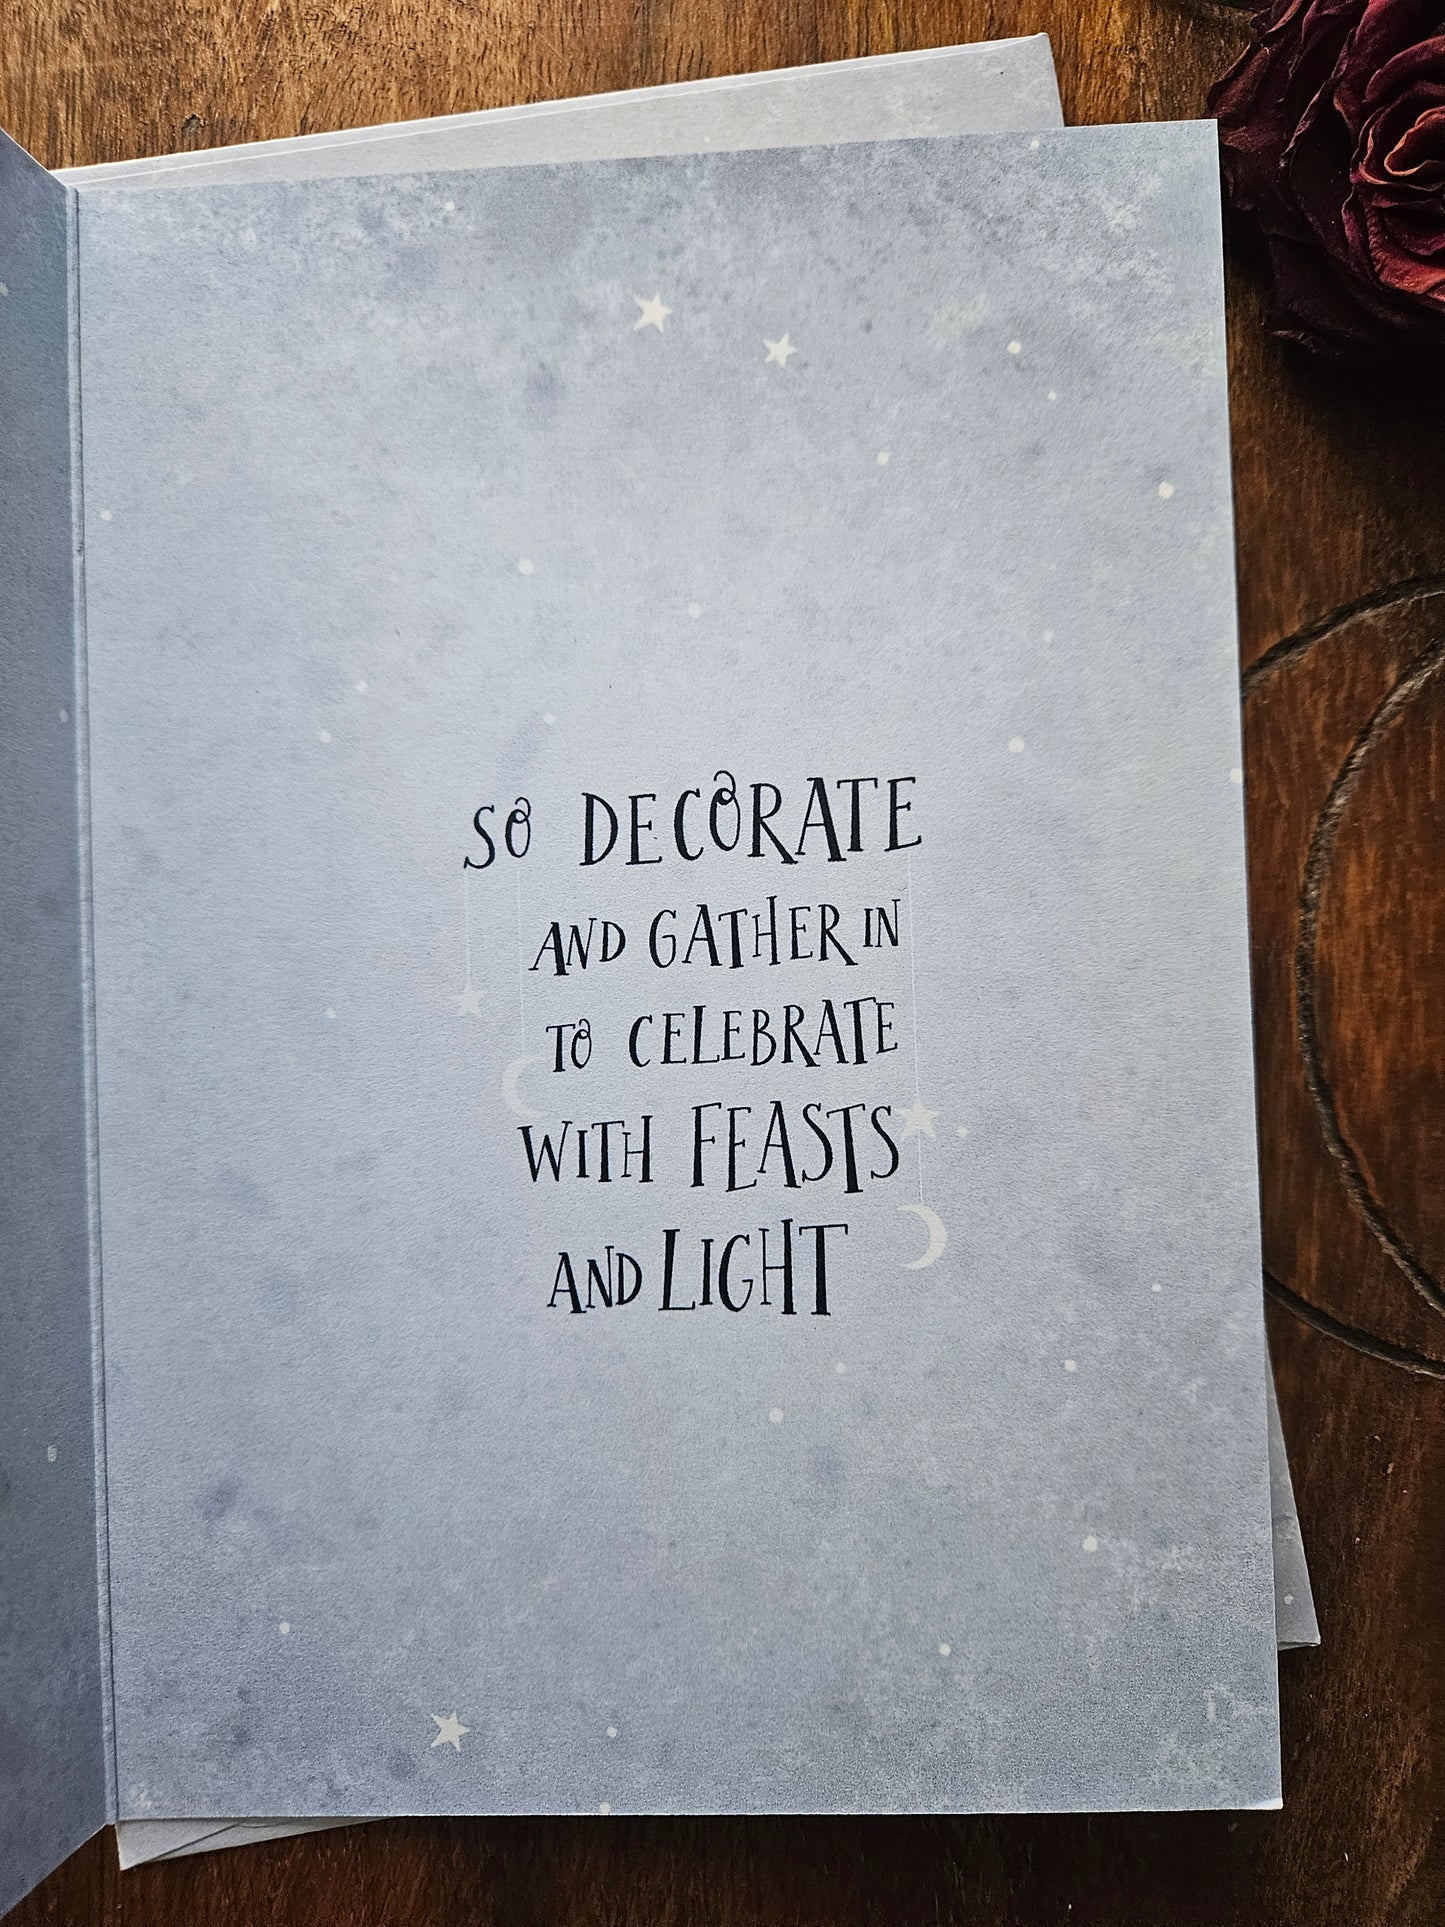 SO DECORATE
AND GATHER IN
TO CELEBRATE
WITH FEASTS
AND LIGHT